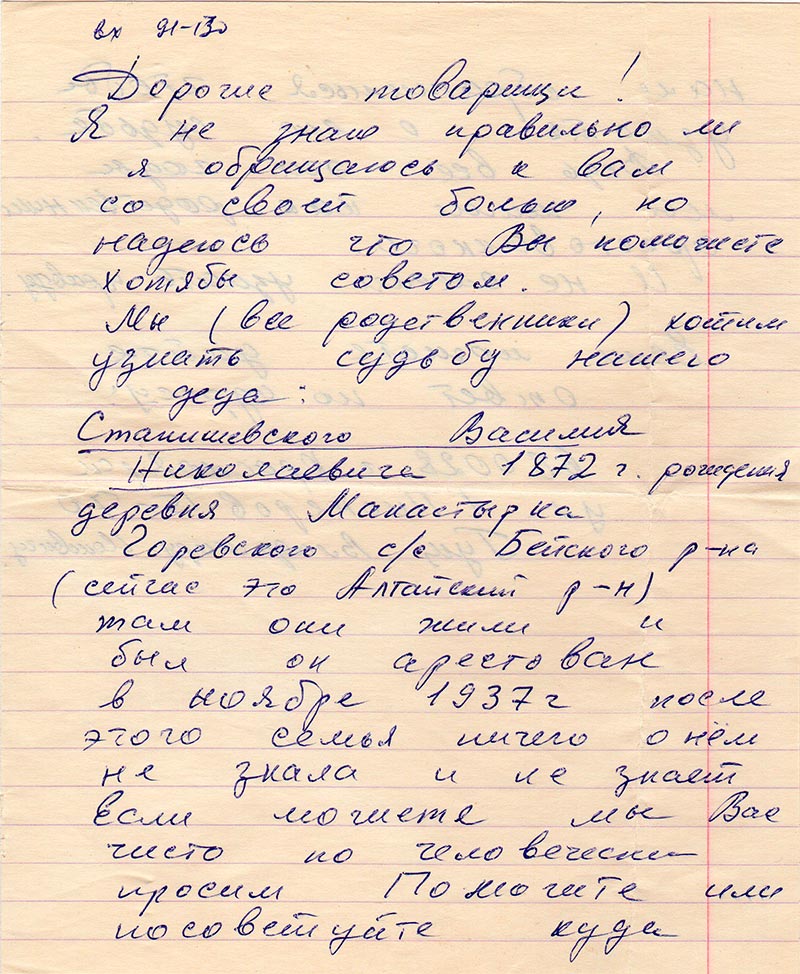 вх 91-130
Дорогие товарищи!
Я не знаю правильно ли
я обращаюсь к вам
со своей болью, но
надеюсь что Вы поможете
хотябы советом.
Мы (все родственники) хотим
узнать судьбу нашего
деда:
Станишевского Василия
Николаевича 1872 г. рождения
деревня Манастырка
Горевского с/с Бейского р-на
(сейчас это Алтайский р-н)
там они жили и
был он арестован
в ноябре 1937 г после
этого семья ничего о нём
не знала и не знает
Если можете мы Вас
чисто по человечески
просим Помогите или
посоветуйте куда